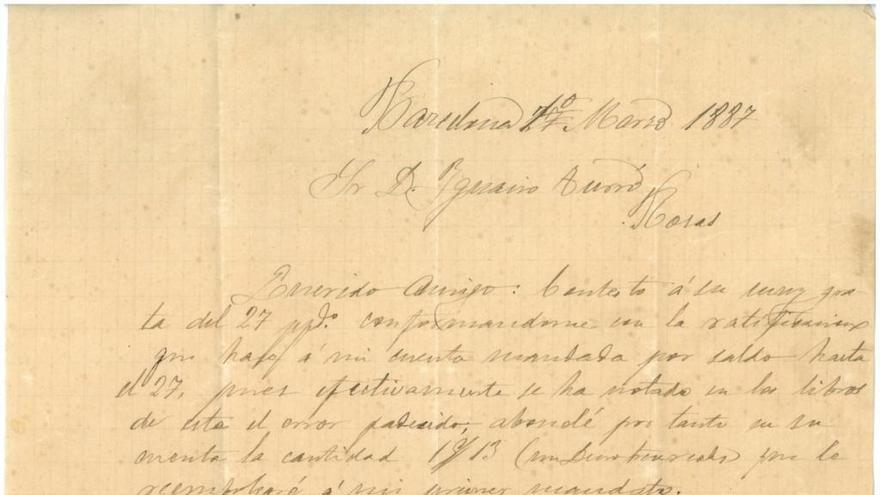 Barcelona 1º Marzo 1887
Sr Dn Ygnacio
Rosas
Querido Amigo: Contesto á su muy gra
ta del 27 ppdo. conformandome con la
que hago á mi cuenta mandada por saldo hasta
el 27, pues efectivamente se ha notado en los libros
de esta el error padecido, abondé por tanto en su
cuenta la cantidad que le
á mi primer mandato.